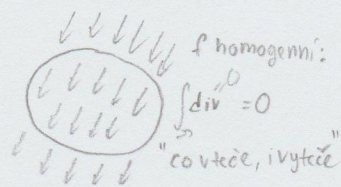 f homogenní:
∫div = 0
"co vteče, i vyteče"